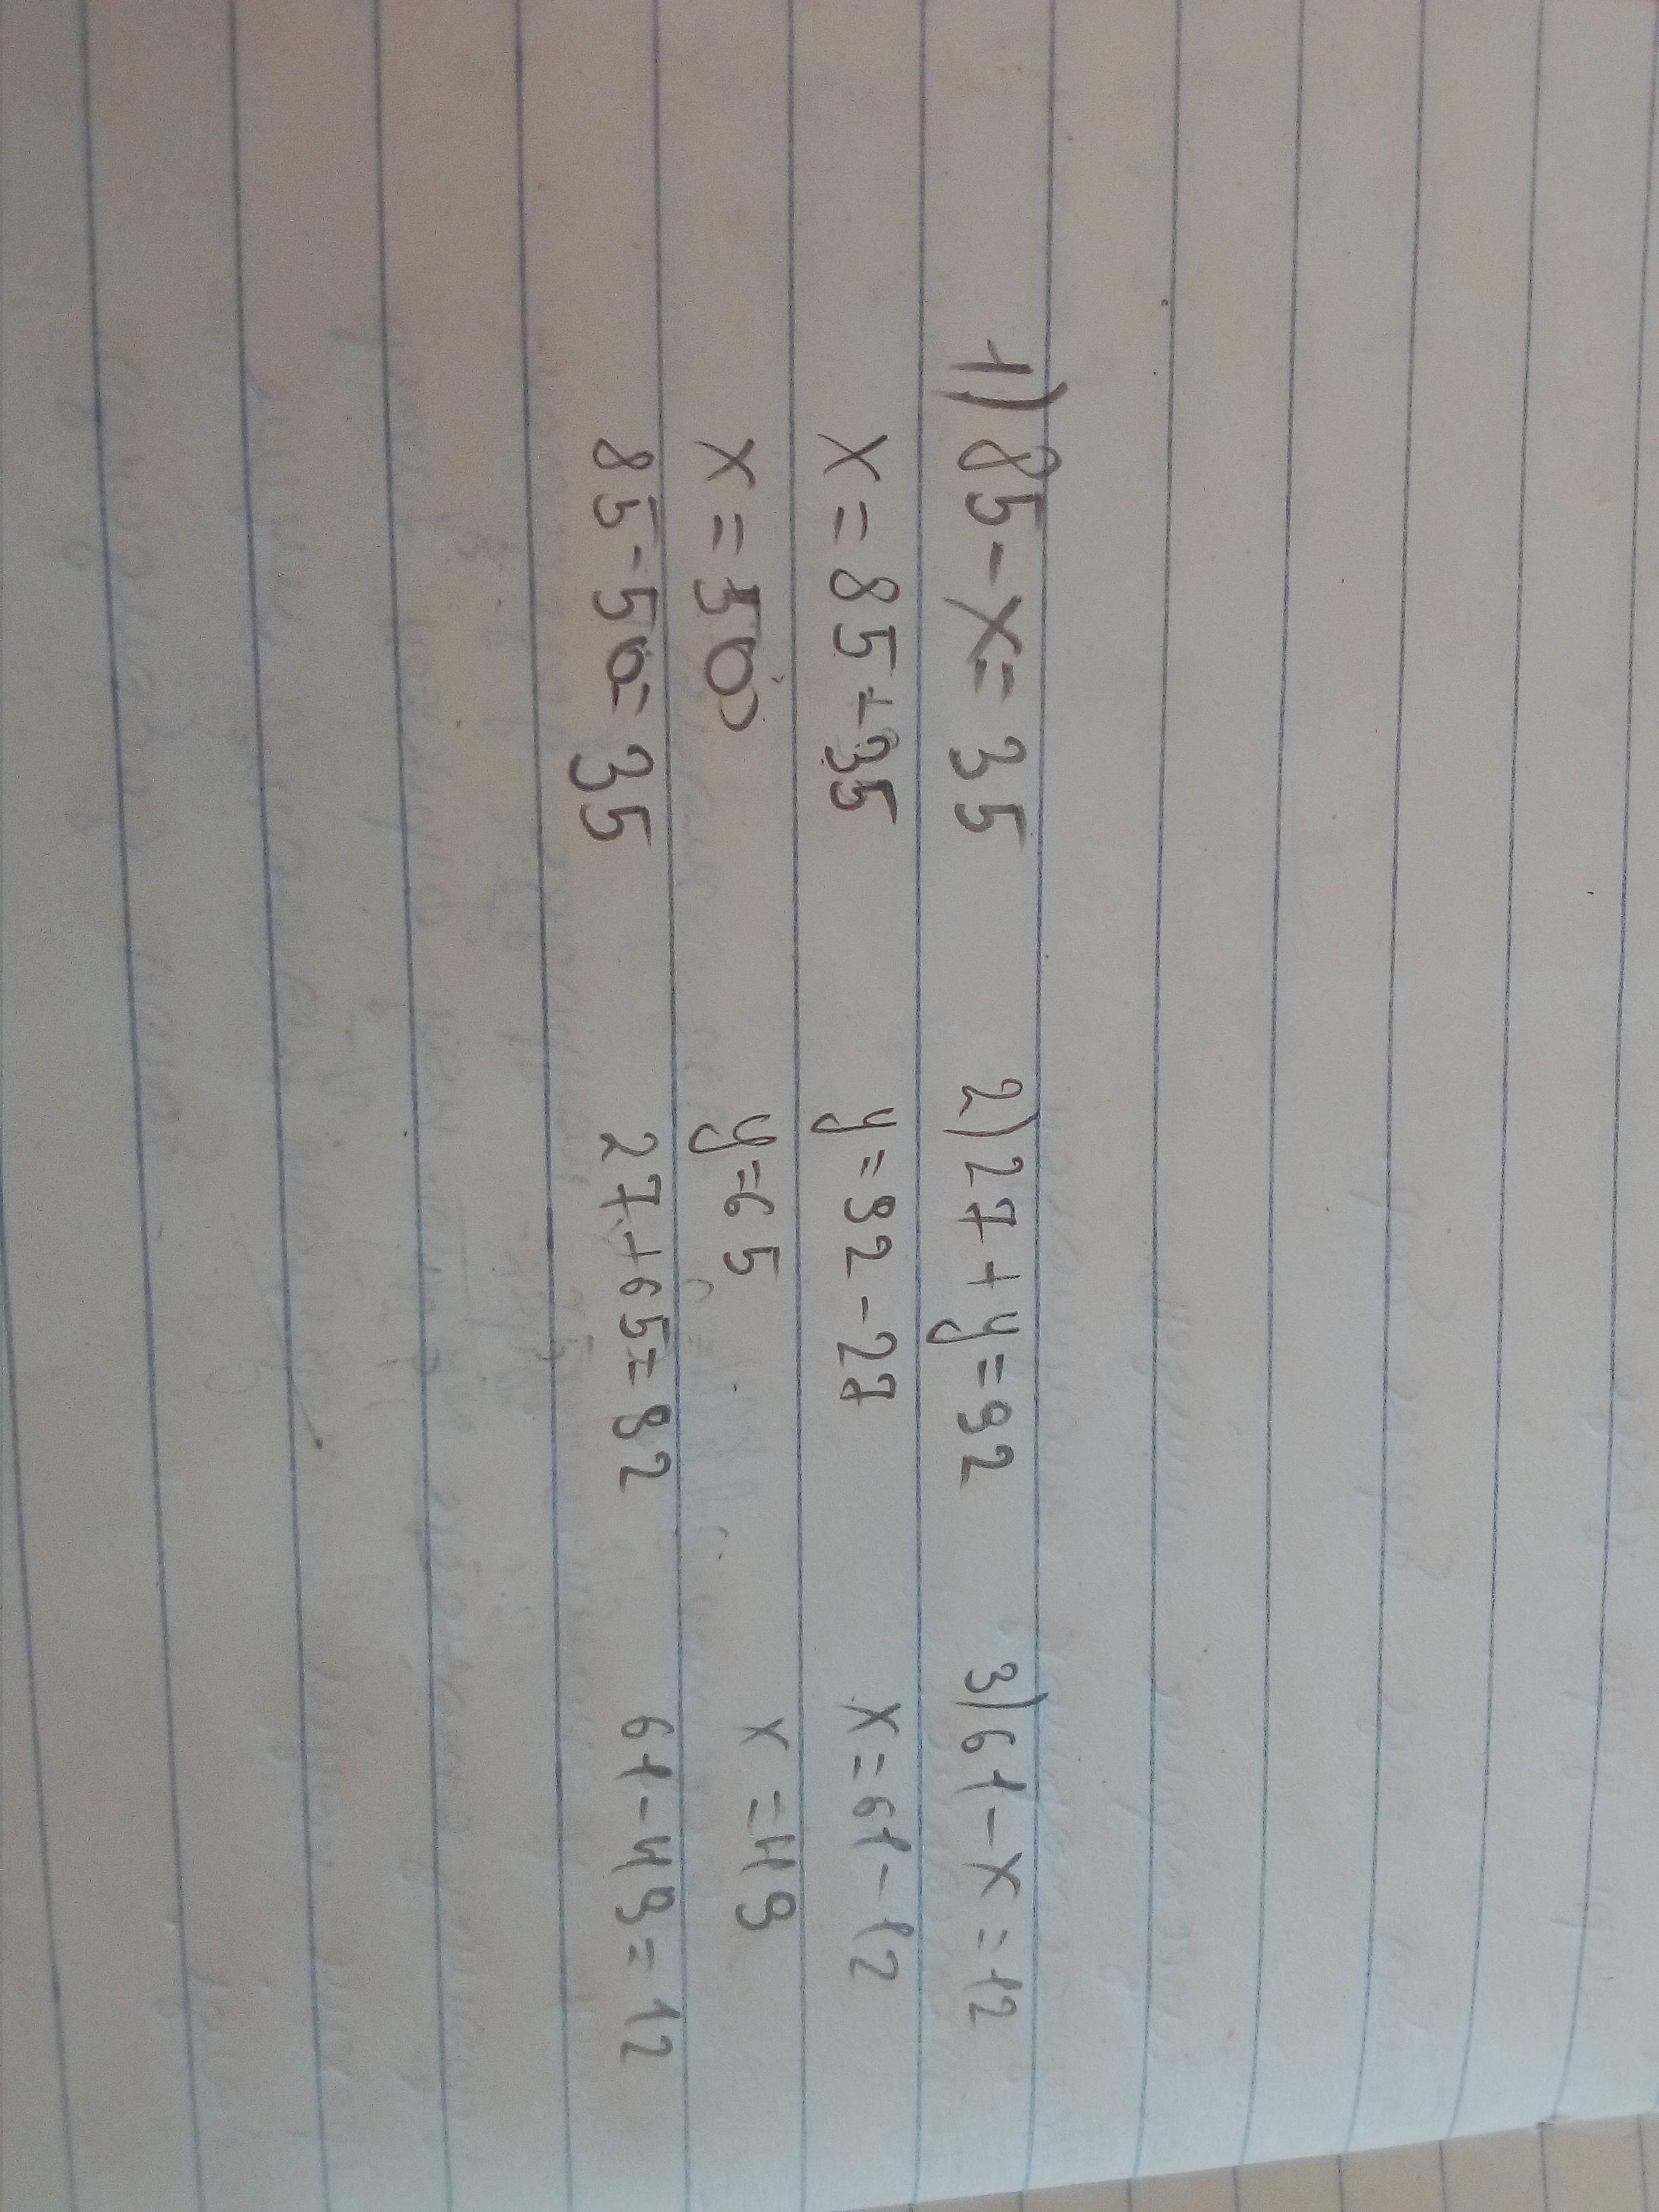 1) 85-x=35 2) 27+y=92 3) 61-x=12
x=85-35 y=92-27 x=61-12
x=50 y=65 x=49
85-50=35 27+65=92 61-49=12